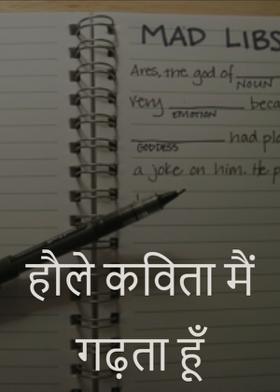 MAD LIBS
Ares, the god of
NOUN
very ________ beca
EMOTION
________ had pla
GODDESS
a joke on him. He p
हौले कविता मैं
गढ़ता हूँ